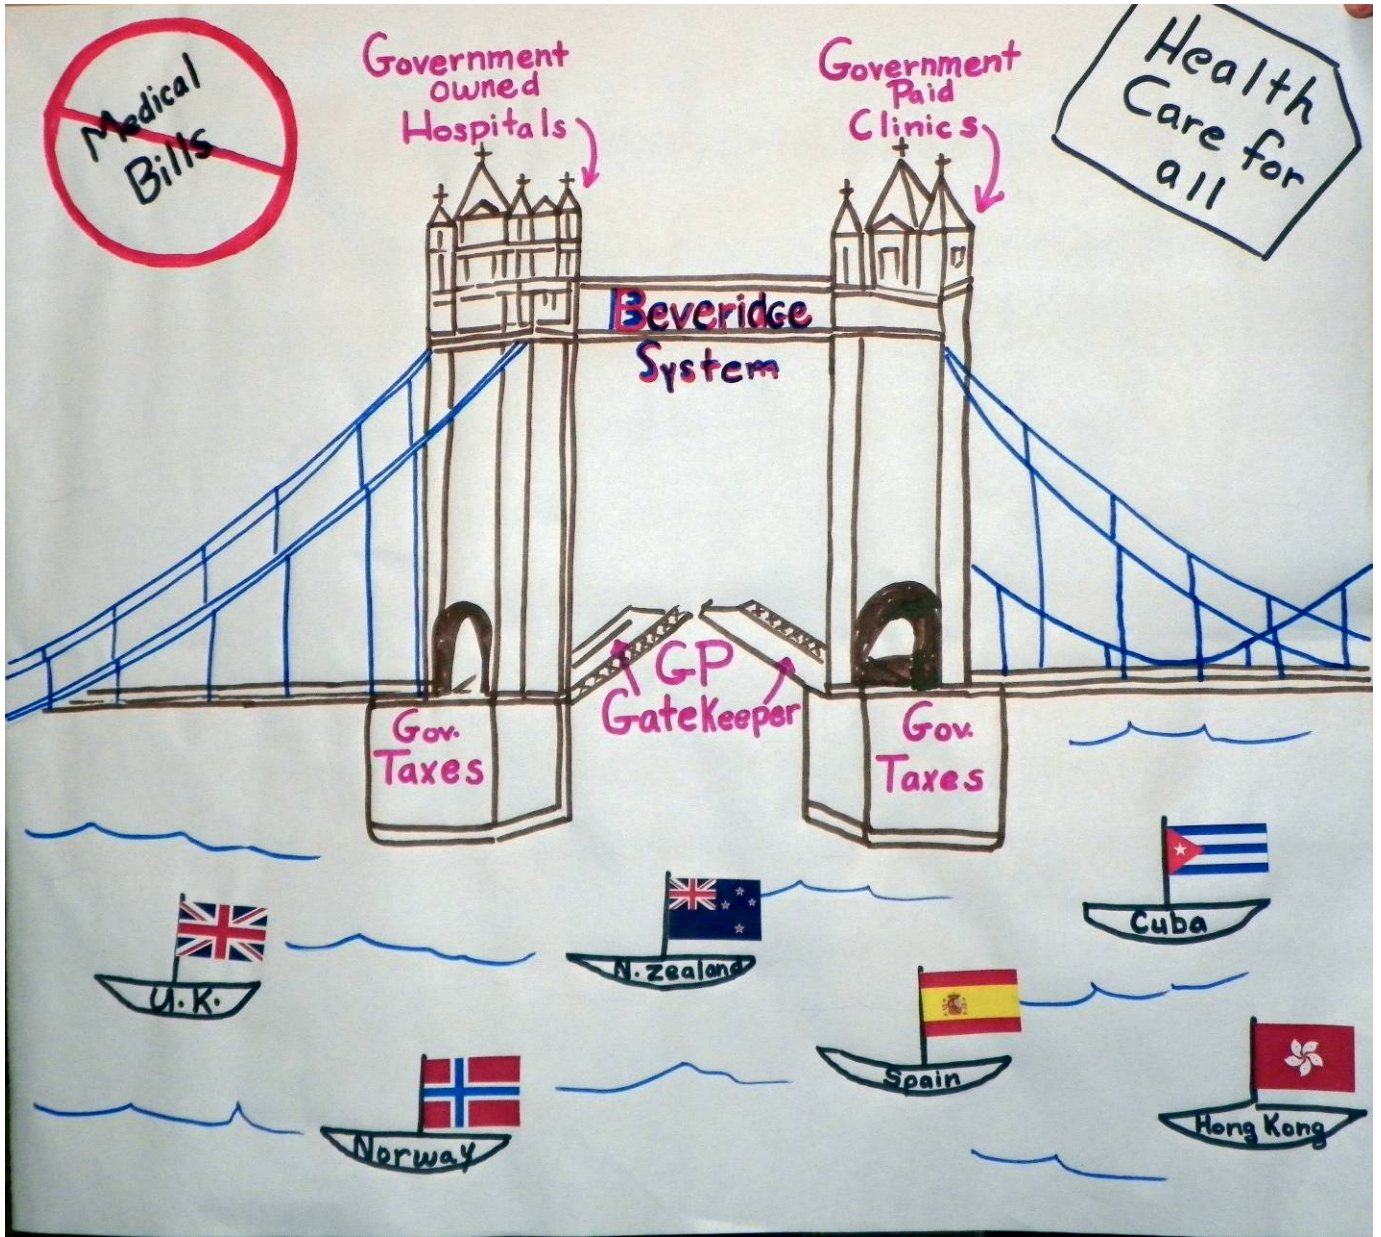 Medical
Bills
Government
owned
Hospitals
Government
Paid
Clinics
Health
Care for
all
Beveridge
System
GP
Gatekeeper
Gov.
Taxes
Gov.
Taxes
U.K.
N. Zealand
Cuba
Spain
Norway
Hong Kong